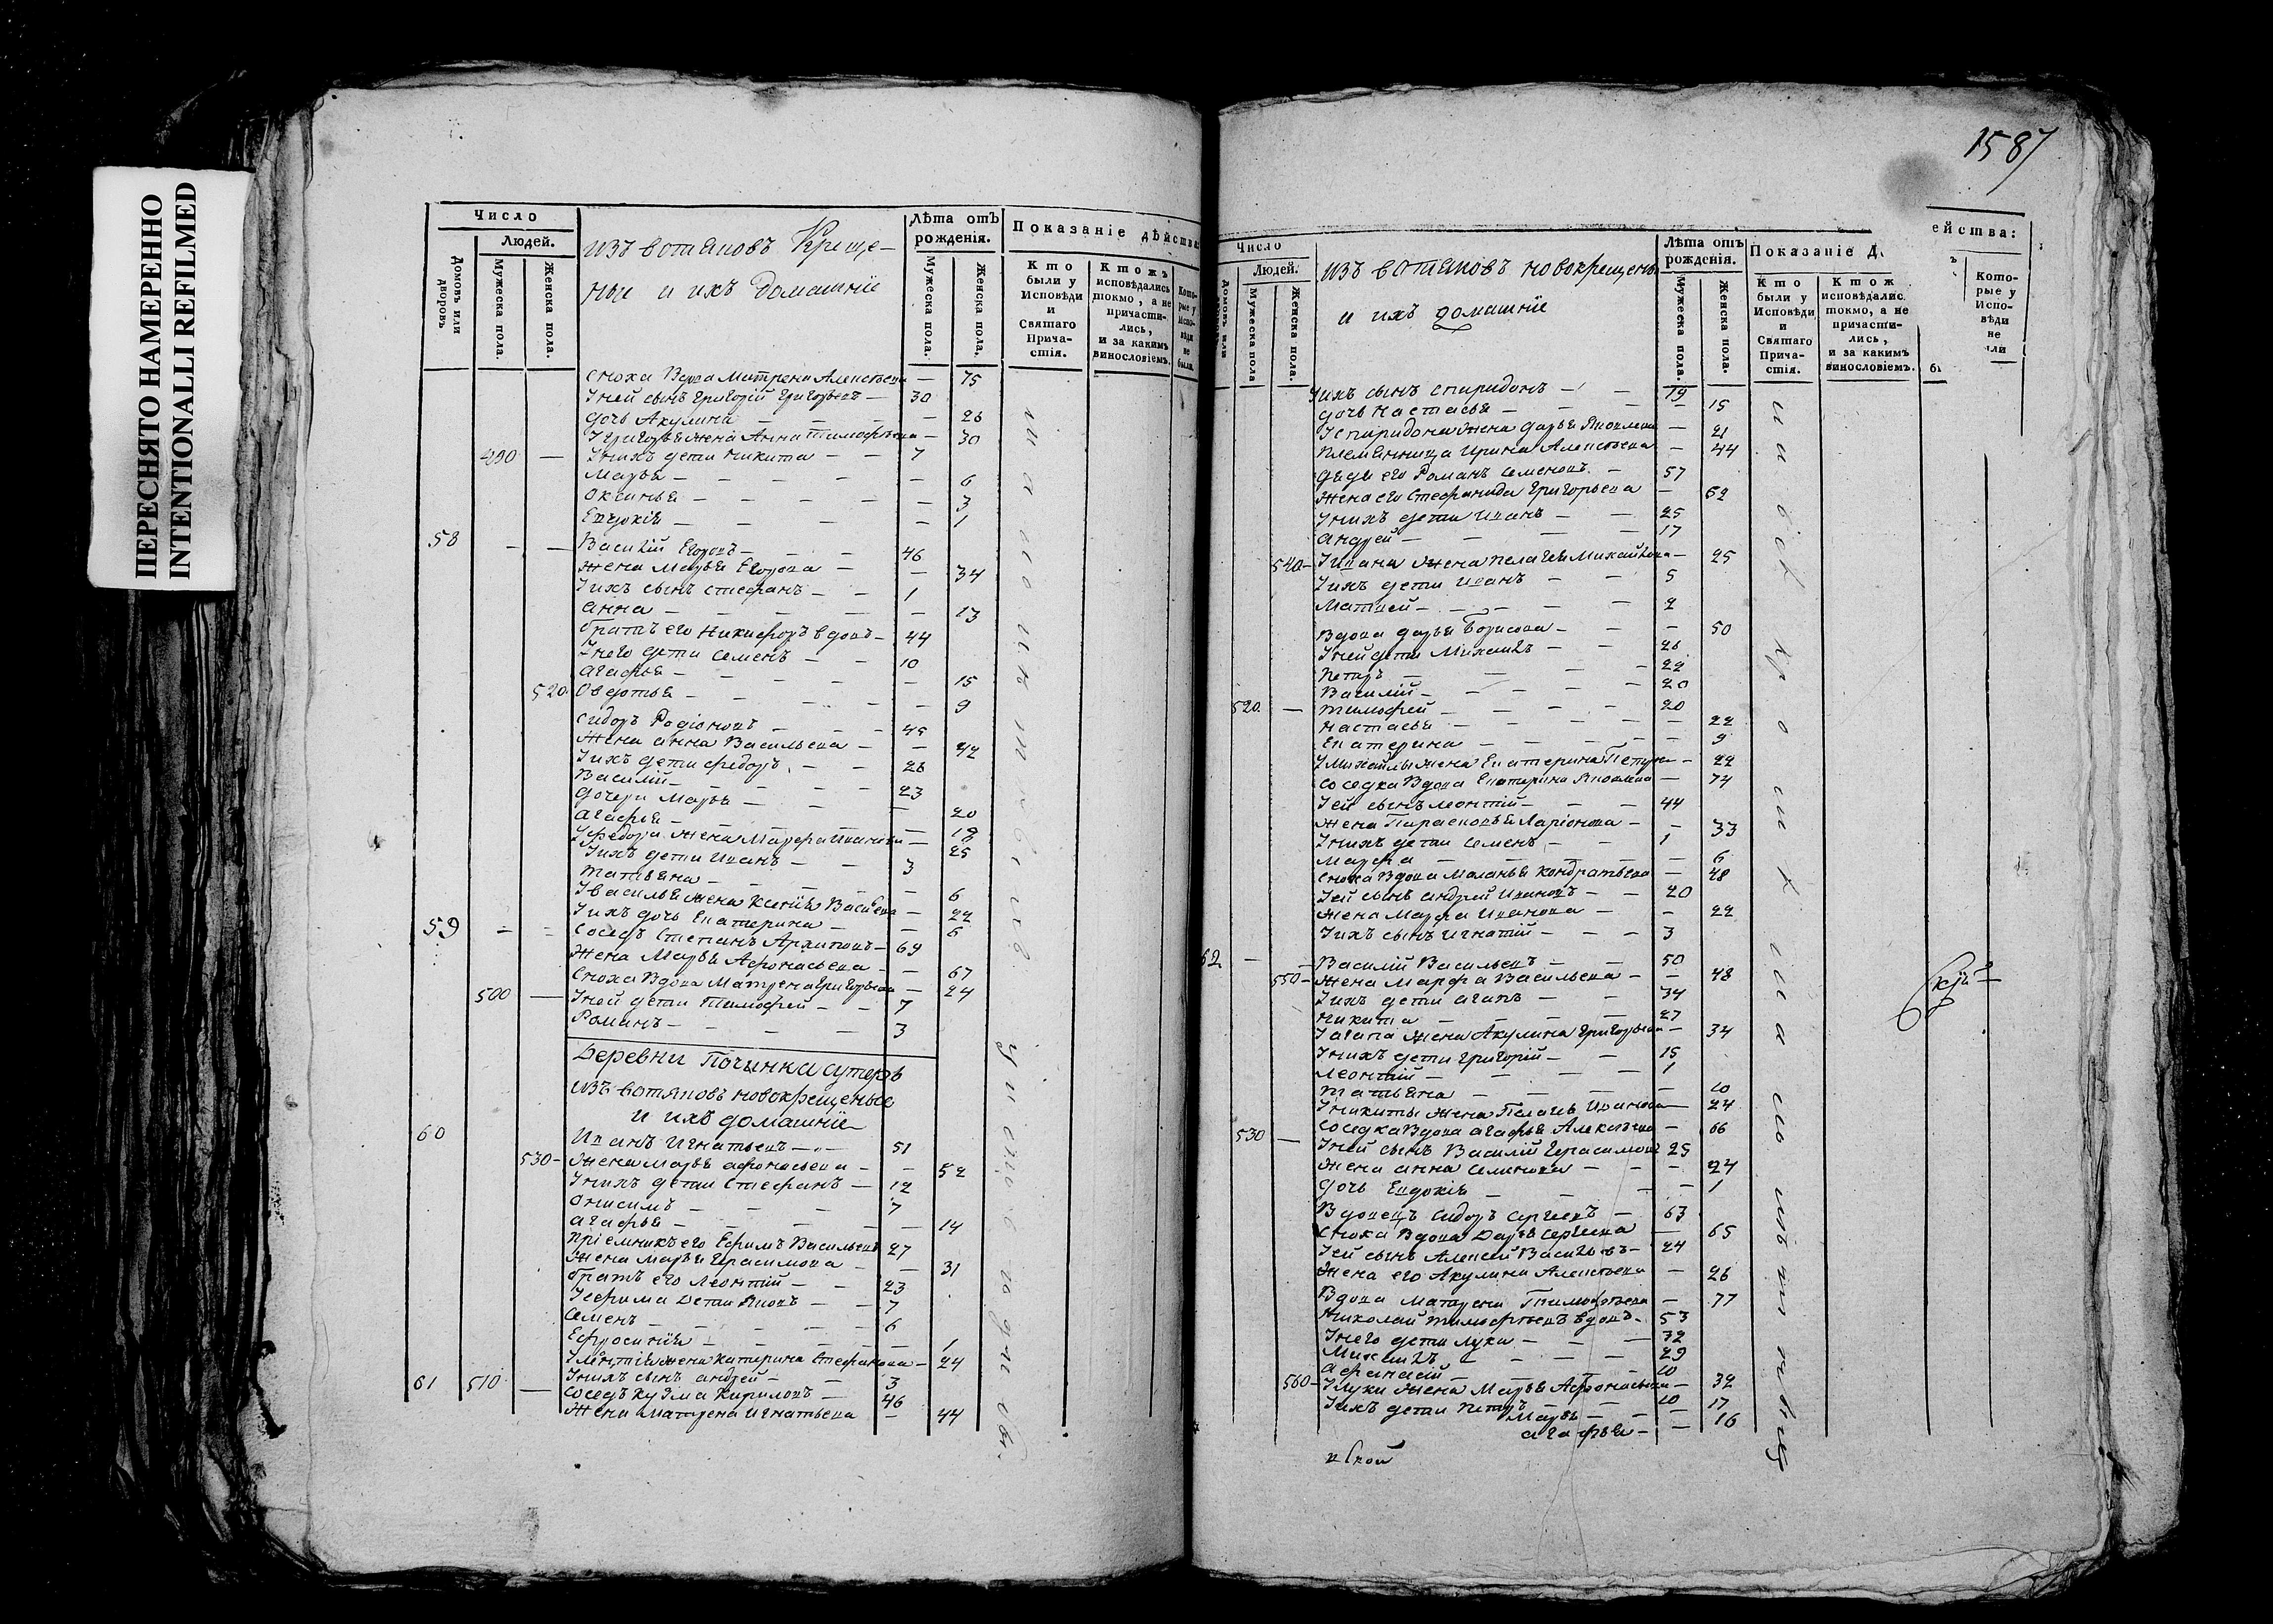 ПЕРЕСНЯТО НАМЕРЕННО
INTENTIONALLI REFILMED
Число
Людей.
Домовъ или дворовъ
Мужеска пола.
Женска пола.
изъ вотяковъ Креще-
ныи и ихъ домашніе
Лѣта отъ рожденія.
Мужеска пола.
Женска пола.
Показаніе дѣйства:
Кто были у Исповѣди и Святаго Прича-стія.
Ктожъ исповѣдались токмо, а не причасти-лись, и за какимъ винословіемъ.
Кото-рые у Испо-вѣди не были.
сноха Вдова Матрена Алексѣева — 75
Уней сынъ Григорій Григорьевъ — 30
дочь Акулина — 26
У Григорья жена Анна Тимофѣева — 30
490 — Унихъ дети Никита — 7
Марья — 6
Оксинья — 3
Евдокія — 1
58 — — Василій Егоровъ — 46
жена Марья Егорова — 34
Уихъ сынъ Стефанъ — 1
Анна — 13
братъ его Никифоръ вдовъ — 44
Унего дети Семенъ — 10
Агафья — 15
520 Овдотья — 9
Сидоръ Родіоновъ — 45
жена Анна Васильева — 42
Уихъ дети Федоръ — 26
Василій — 23
дочери Марья — 20
Агафья — 18
У Федора жена Марфа Иванова — 25
Уихъ дети Иванъ — 3
Татьяна — 6
У Василья жена Ксенія Васильева — 22
Уихъ дочь Екатерина — 6
59 — — Соседъ Степанъ Архиповъ — 69
жена Марья Афонасьева — 67
сноха Вдова Матрена Григорьева — 24
500 — Уней дети Тимофей — 7
Романъ — 3
Деревни Починка сутеръ
изъ вотяковъ новокрещеные
и ихъ домашніе
60 Иванъ Игнатьевъ — 51
530 — жена Марья Афонасьева — 52
Унихъ дети Стефанъ — 12
Онисимъ — 7
Агафья — 14
пріемникъ его Ефимъ Васильевъ 27
жена Марья Герасимова — 31
братъ его Леонтій — 23
У Ефима дети Яковъ — 7
Семенъ — 6
Ефросинія — 1
У Леонтія жена Катерина Стефанова — 24
Унихъ сынъ Андрей — 3
61 510 — Соседъ Кузма Кириловъ — 46
жена Матрена Игнатьева — 44
1587
Число
Людей.
Домовъ или
Мужеска пола
Женска пола.
изъ вотяковъ новокрещены
и ихъ домашніе
Лѣта отъ рожденія.
Мужеска пола.
Женска пола.
Показаніе Д
ейства:
Кто были у Исповѣди и Святаго Прича-стія.
Ктож исповѣдалис токмо, а не причасти-лись, и за какимъ винословіемъ.
Кото-рые у Испо-вѣди не или
Уихъ сынъ Спиридонъ — 19
дочь Настасья — 15
У Спиридона жена Дарья Яковлева — 21
племянница Ирина Алексѣева — 44
дядя его Романъ Семеновъ — 57
жена его Стефанида Григорьева — 62
Унихъ дети Иванъ — 25
Андрей — 17
540 — У Ивана жена Пелагея Михайлова — 25
Уихъ дети Иванъ — 5
Матвей — 2
Вдова Дарья Борисова — 50
Уней дети Михаилъ — 26
Петръ — 22
Василій — 20
520 — Тимофей — 20
Настасья — 22
Екатерина — 9
У Михайлы жена Екатерина Петрова — 22
Соседка Вдова Екатерина Яковлева — 74
Уей сынъ Леонтій — 44
жена Парасковья Ларіонова — 33
Унихъ дети Семенъ — 1
Марфа — 6
сноха Вдова Маланья Кондратьева — 48
Уей сынъ Андрей Ивановъ — 20
жена Марфа Иванова — 22
Уихъ сынъ Игнатій — 3
62 — Василій Васильевъ — 50
550 — жена Марфа Васильева — 48
Уихъ дети Агапъ — 34
Никита — 27
У Агапа жена Акулина Григорьева — 34
Унихъ дети Григорій — 15
Леонтій — 1
Татьяна — 10
У Никиты жена Пелагея Иванова — 24
530 — Соседка Вдова Агафья Алексѣева — 66
Уней сынъ Василій Герасимовъ 25
жена Анна Семенова — 24
дочь Евдокія — 1
Вдовецъ Сидоръ Сергеевъ — 63
сноха Вдова Дарья Сергеева — 65
Уей сынъ Алексей Васильевъ — 24
жена его Акулина Алексѣева — 26
Вдова Матрена Тимофѣева — 77
Николай Тимофѣевъ вдовъ — 53
Унего дети Лука — 32
Михаилъ — 29
Афанасій — 10
560 — У Луки жена Марья Афонасьева — 32
Уихъ дети Петръ — 10
Марья — 17
Агафья — 16